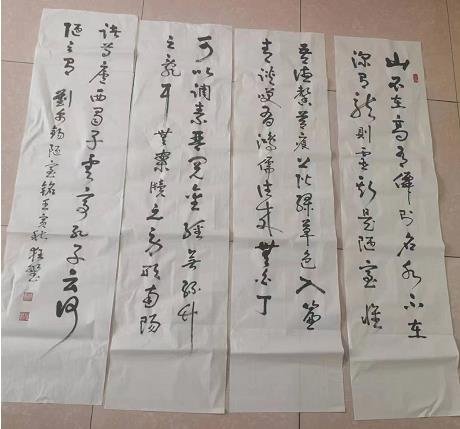 山不在高有僊則名水不在
深有龍則靈斯是陋室惟
吾德馨苔痕上階綠草色入簾
青談笑有鴻儒往來無白丁
可以調素琴閱金經無絲竹
之亂耳無案牘之勞形南陽
諸葛廬西蜀子雲亭孔子云何
陋之有 劉禹錫陋室銘 壬寅秋